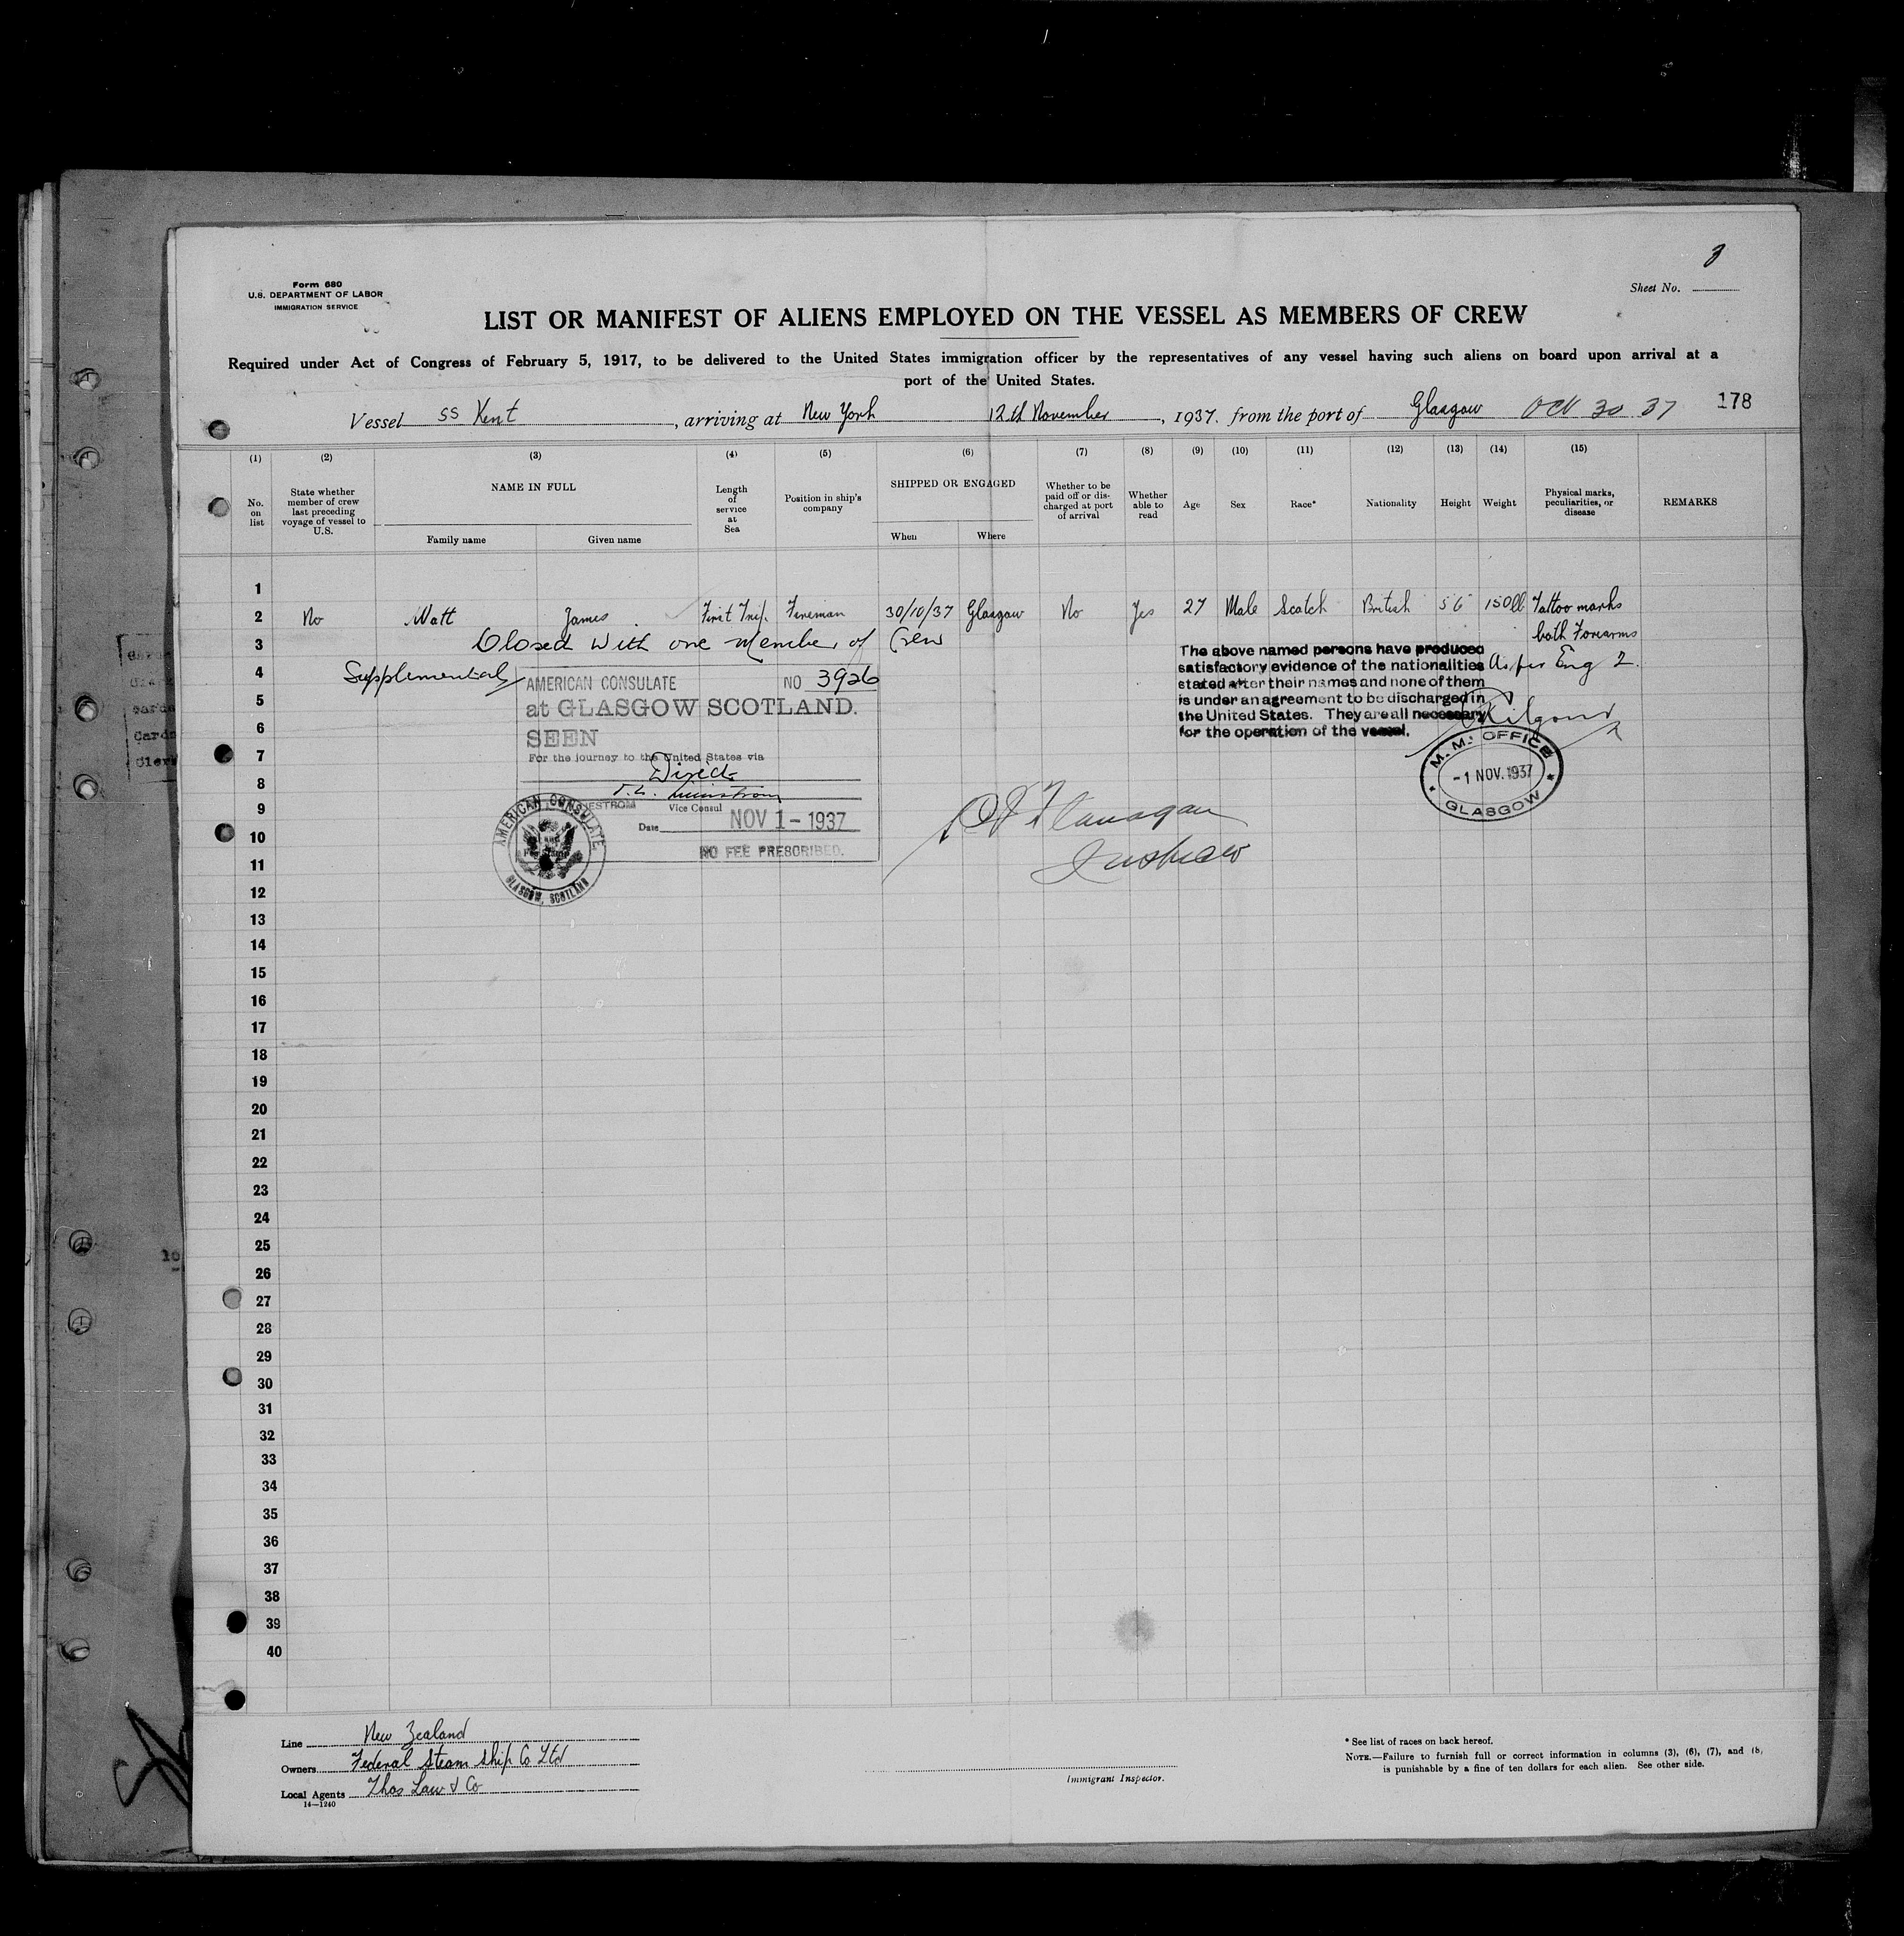 3
Form 680
U.S. DEPARTMENT OF LABOR
IMMIGRATION SERVICE
Sheet No.
LIST OR MANIFEST OF ALIENS EMPLOYED ON THE VESSEL AS MEMBERS OF CREW
Required under Act of Congress of February 5, 1917, to be delivered to the United States immigration officer by the representatives of any vessel having such aliens on board upon arrival at a
port of the United States.
Vessel SS Kent, arriving at New York 12th November, 1937. from the port of Glasgow Oct 30 37 178
(1) (2) (3) (4) (5) (6) (7) (8) (9) (10) (11) (12) (13) (14) (15)
No. on list
State whether member of crew last preceding voyage of vessel to U.S.
NAME IN FULL
Family name
Given name
Length of service at Sea
Position in ship's company
SHIPPED OR ENGAGED
When
Where
Whether to be paid off or discharged at port of arrival
Whether able to read
Age
Sex
Race*
Nationality
Height
Weight
Physical marks, peculiarities, or disease
REMARKS
1
2 No Watt James First Trip. Fireman 30/10/37 Glasgow No Yes 27 Male Scotch British 5 6 150lb Tattoo marks
both Forearms
3 Closed with one member of Crew
4 Supplemental
AMERICAN CONSULATE NO 3926
at GLASGOW SCOTLAND.
SEEN
For the journey to the United States via
Direct
Vice Consul
Date NOV 1 - 1937
NO FEE PRESCRIBED.
AMERICAN CONSULATE
GLASGOW, SCOTLAND
The above named persons have produced
satisfactory evidence of the nationalities As per Eng 2.
stated after their names and none of them
is under an agreement to be discharged in
the United States. They are all necessary
for the operation of the vessel.
Kilgour
M. M. OFFICE
-1 NOV. 1937
GLASGOW
Flanagan
5
6
7
8
9
10
11
12
13
14
15
16
17
18
19
20
21
22
23
24
25
26
27
28
29
30
31
32
33
34
35
36
37
38
39
40
Line New Zealand
Owners Federal Steam Ship Co Ltd
Local Agents Thos Law & Co
14—1240
Immigrant Inspector.
* See list of races on back hereof.
NOTE.—Failure to furnish full or correct information in columns (3), (6), (7), and (8)
is punishable by a fine of ten dollars for each alien. See other side.